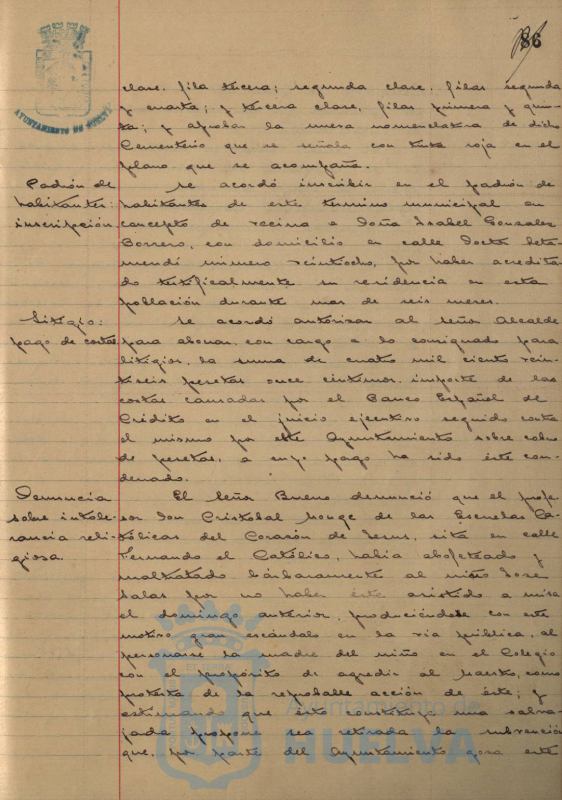 86
AYUNTAMIENTO DE HUELVA
clase, fila tercera; segunda clase, filas segunda
y cuarta; y tercera clase, filas primera y quin-
ta; y aprobar la nueva nomenclatura de dicho
Cementerio que se señala con tinta roja en el
plano que se acompaña.
Padrón de
habitantes:
inscripción
Se acordó inscribir en el padrón de
habitantes de este termino municipal en
concepto de vecina a Doña Isabel Gonzalez
Borrero, con domicilio en calle Doctor
número veintiocho, por haber acredita-
do testificalmente su residencia en esta
población durante mas de seis meses.
Litigio:
pago de costas
Se acordó autorizar al Señor Alcalde
para abonar, con cargo a lo consignado para
litigios, la suma de cuatro mil ciento vein-
tiseis pesetas once céntimos, importe de las
costas causadas por el Banco Español de
Crédito en el juicio ejecutivo seguido contra
el mismo por este Ayuntamiento sobre cobro
de pesetas, a cuyo pago ha sido éste con-
denado.
Denuncia
sobre intole-
rancia reli-
giosa.
El Señor Bueno denunció que el profe-
sor Don Cristobal Monge de las Escuelas Ca-
tólicas del Corazón de Jesus, sita en calle
Fernando el Católico, había abofeteado y
maltratado bárbaramente al niño José
Salas por no haber éste asistido a misa
el domingo anterior, produciéndose con este
motivo gran escándalo en la vía pública, al
personarse la madre del niño en el Colegio
con el propósito de agredir al Maestro, como
protesta de la reprobable acción de éste; y
estimando que ésto constituye una salva-
jada propone sea retirada la subvención
que, por parte del Ayuntamiento goza este
Ayuntamiento de
HUELVA